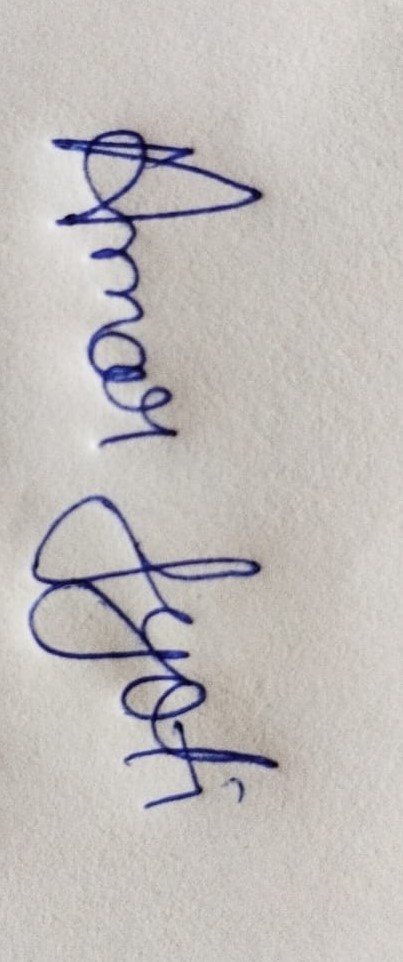 Amar Jyoti